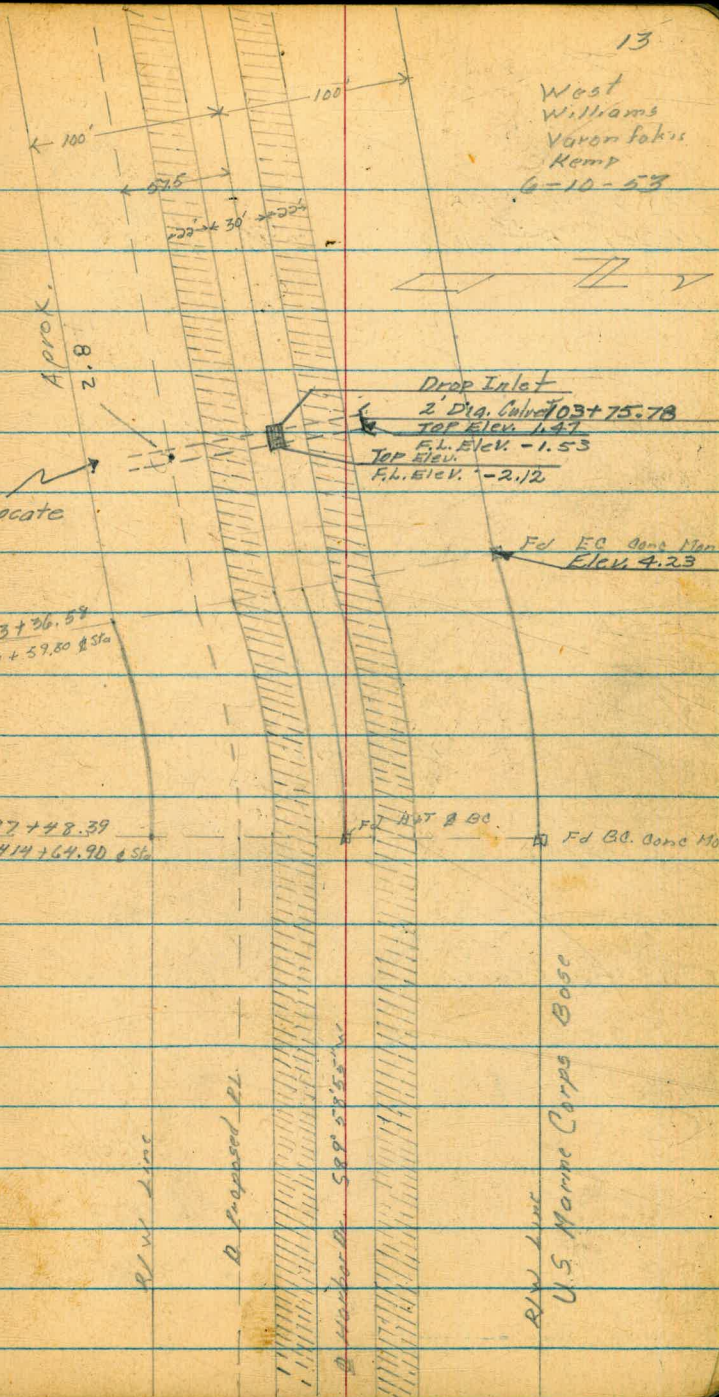 13
West
Williams
Varonfakis
Kemp
6-10-53
100'
100'
57.5
22' 30' 22'
Aprox.
2.8
Drop Inlet
2' Dia. Culvert 103+75.78
TOP Elev. 1.47
F.L. Elev. -1.53
TOP Elev.
F.L. Elev. -2.12
ocate
Fd EC Conc Mon
Elev. 4.23
3+36.58
+59.80 ℄ Sta
7+48.39
414+64.90 ℄ Sta
Fd H&T @ BC
Fd BC. Conc Mo
R/W Line
Proposed P.L.
Harbor Dr. S89° 58' 55" W
R/W Line
U.S. Marine Corps Base